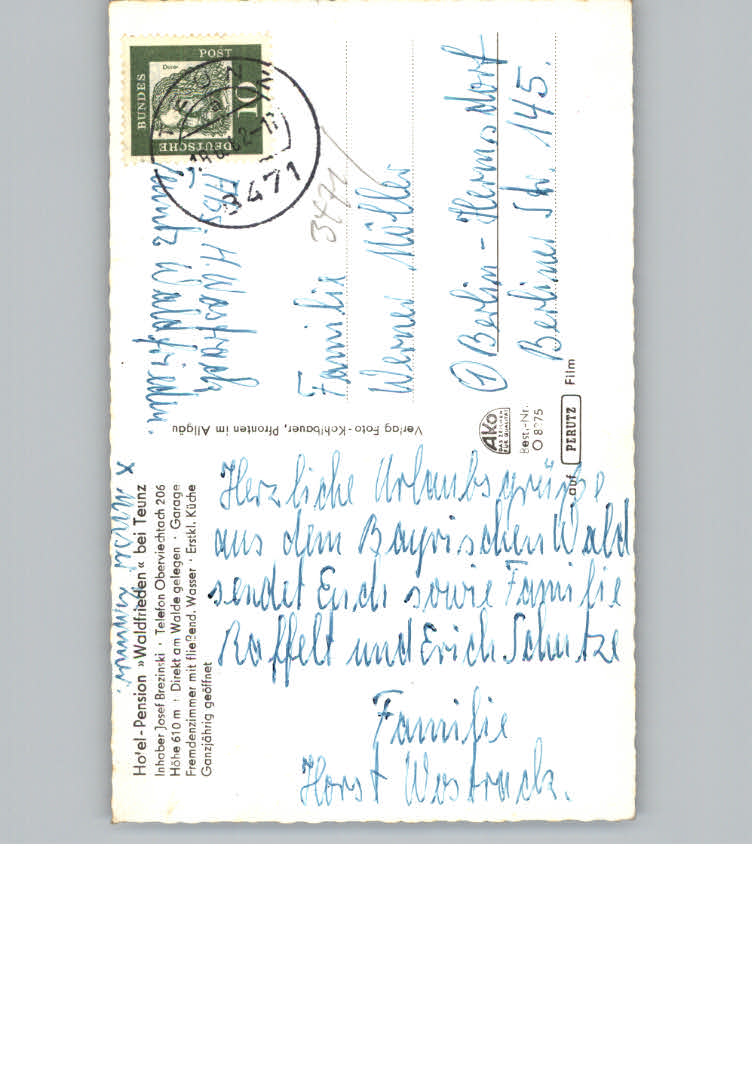 Hotel-Pension »Waldfrieden« bei Teunz
Inhaber Josef Brezinski · Telefon Oberviechtach 206
Höhe 610 m · Direkt am Walde gelegen · Garage
Fremdenzimmer mit fließend. Wasser · Erstkl. Küche
Ganzjährig geöffnet
x unser Zimmer.
Herzliche Urlaubsgrüße
aus dem Bayrischen Wald
sendet Euch sowie Familie
Raffelt und Erich Schutze
Familie
Horst Wostrack.
Verlag Foto-Kohlbauer, Pfronten im Allgäu
AKO
DAS ZEICHEN
FÜR QUALITÄT
Best.-Nr.
O 8275
auf PERUTZ Film
DEUTSCHE
BUNDES
POST
10
Dürer
TEUNZ
a
3471
Abs.
H. Wostrack
Teunz Waldfrieden
3471
Familie
Werner Möller
1 Berlin - Hermsdorf
Berliner Str. 145.